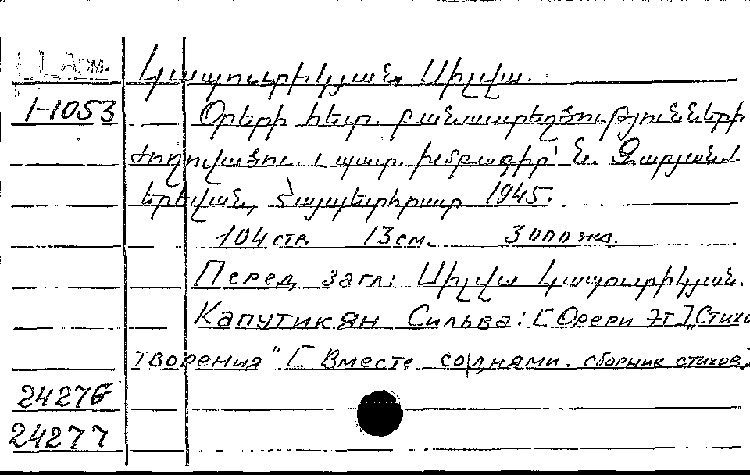 Арм.
Կապուտիկյան, Սիլվա.
1-1053
Օրերի հետ. բանաստեղծությունների
ժողովածու. պատ. խմբագիր՝ Ն. Զարյան
Երևան, Հայպետհրատ 1945.
104 стр. 13 см. 3000 экз.
Перед загл: Սիլվա Կապուտիկյան.
Капутикян Сильва: [Орери эт], Стихо
творения" [Вместе со днями. сборник стихов]
24276
24277